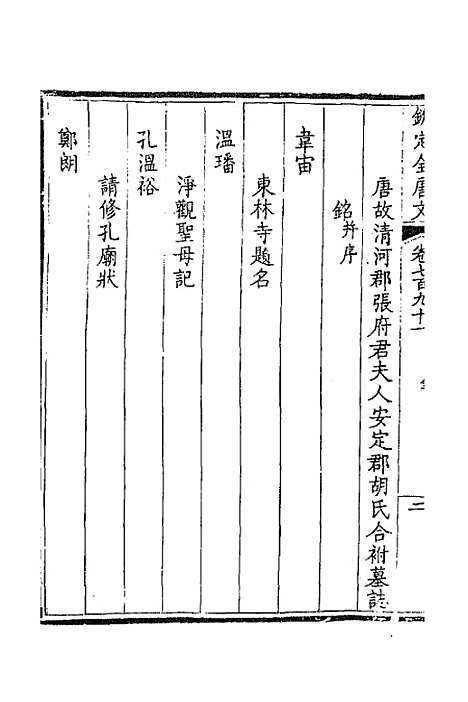 欽定全唐文 卷七百九十一 二
唐故清河郡張府君夫人安定郡胡氏合祔墓誌
銘并序
韋宙
東林寺題名
溫璠
淨觀聖母記
孔溫裕
請修孔廟狀
鄭朗